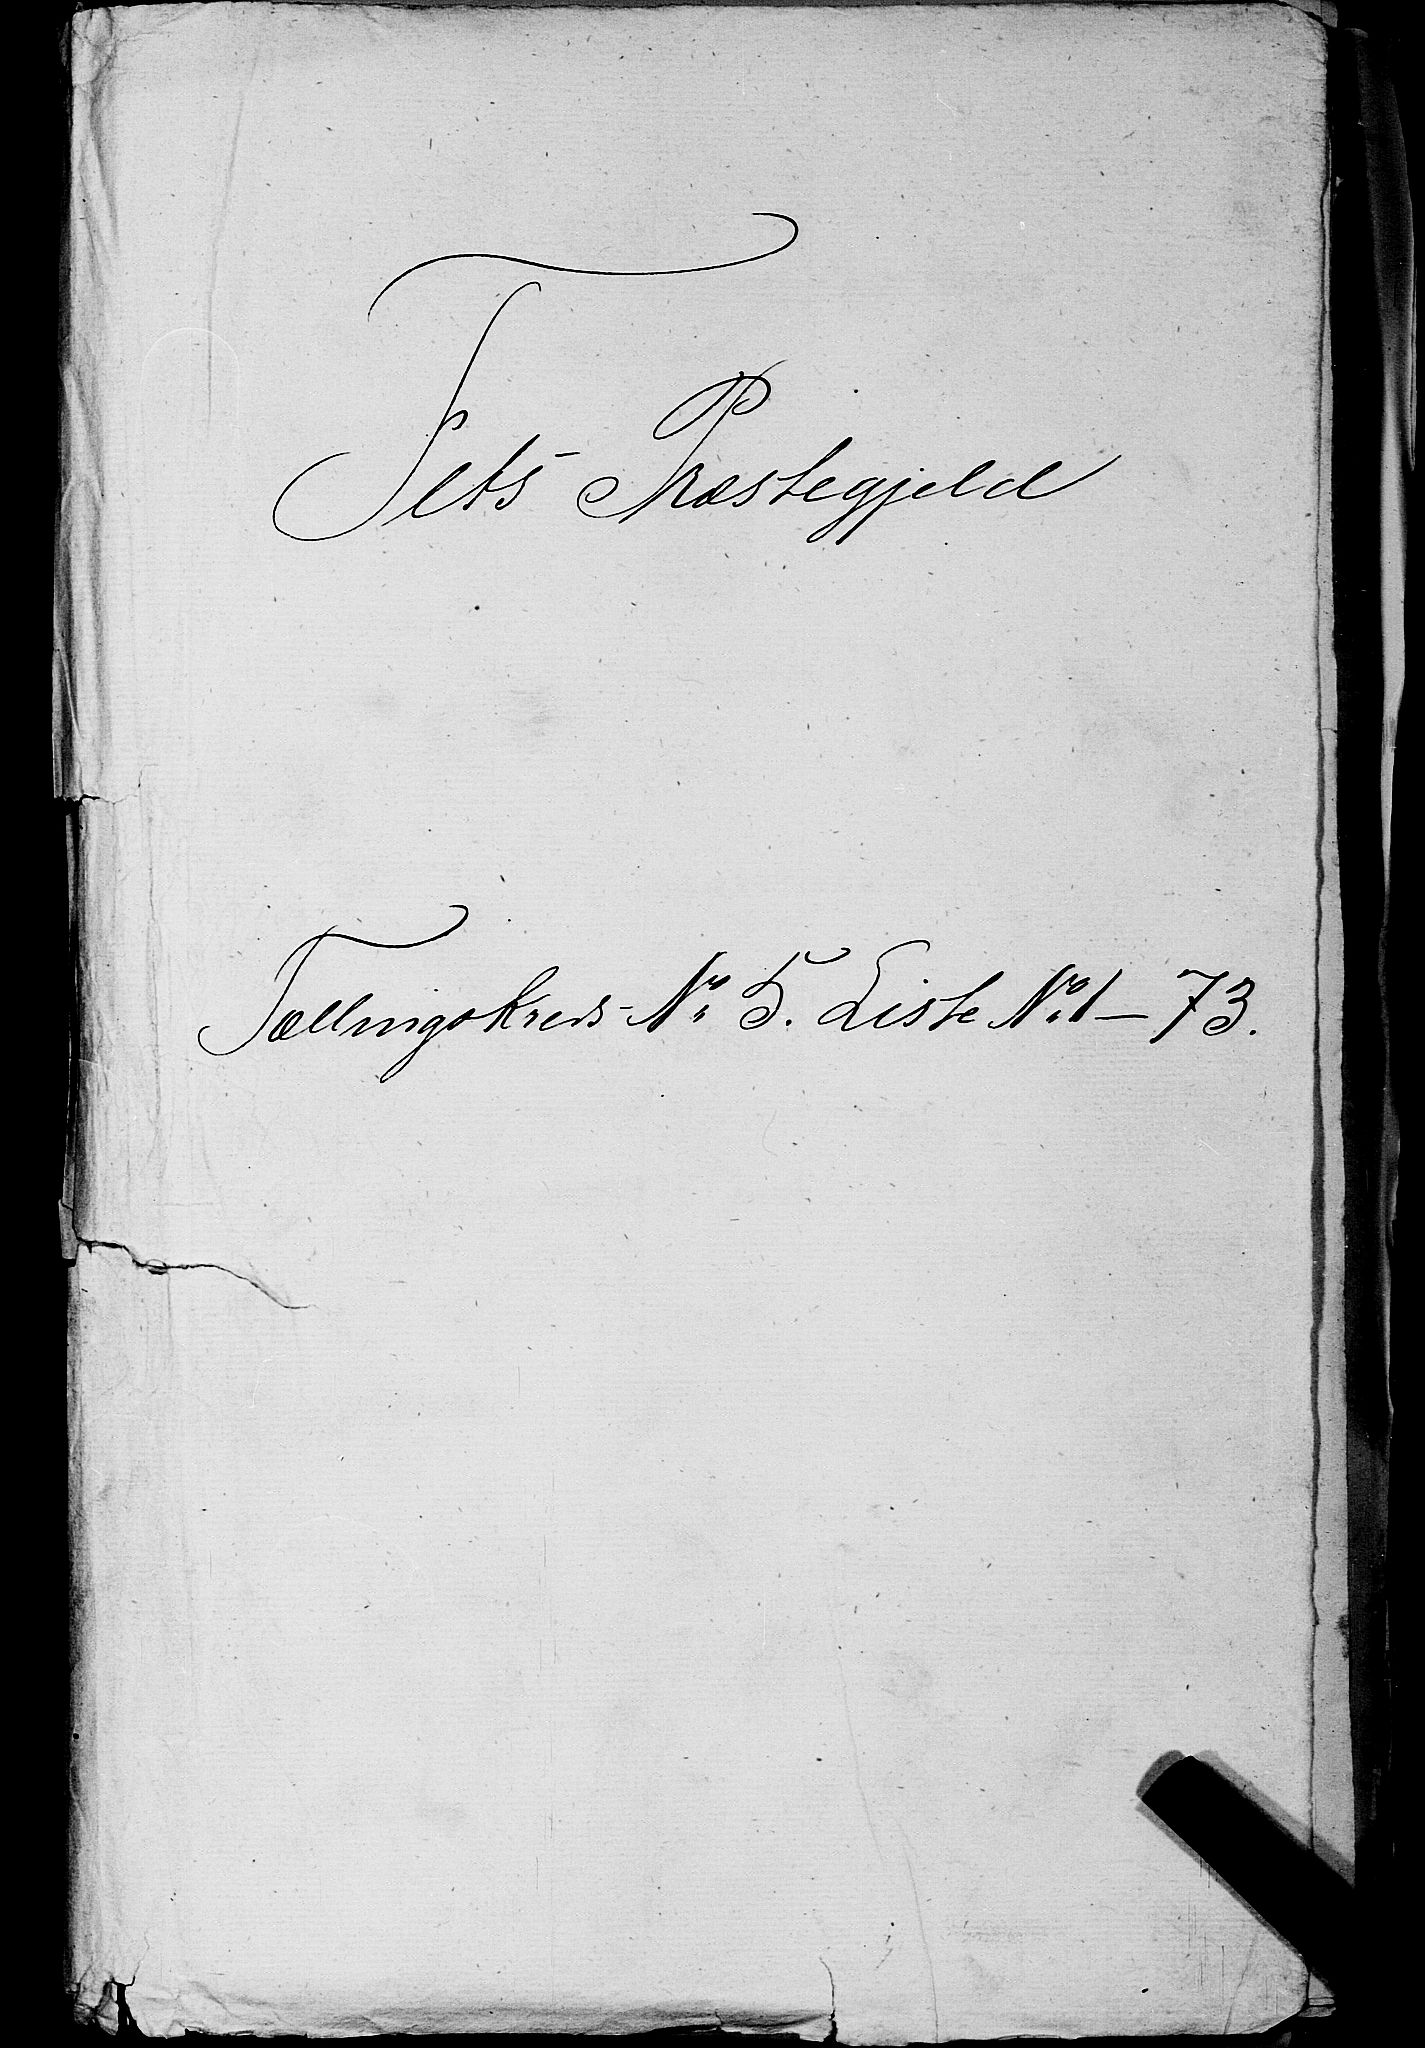 Fets Præstegjeld
Tællingskreds No 5. Liste No 1 — 73.